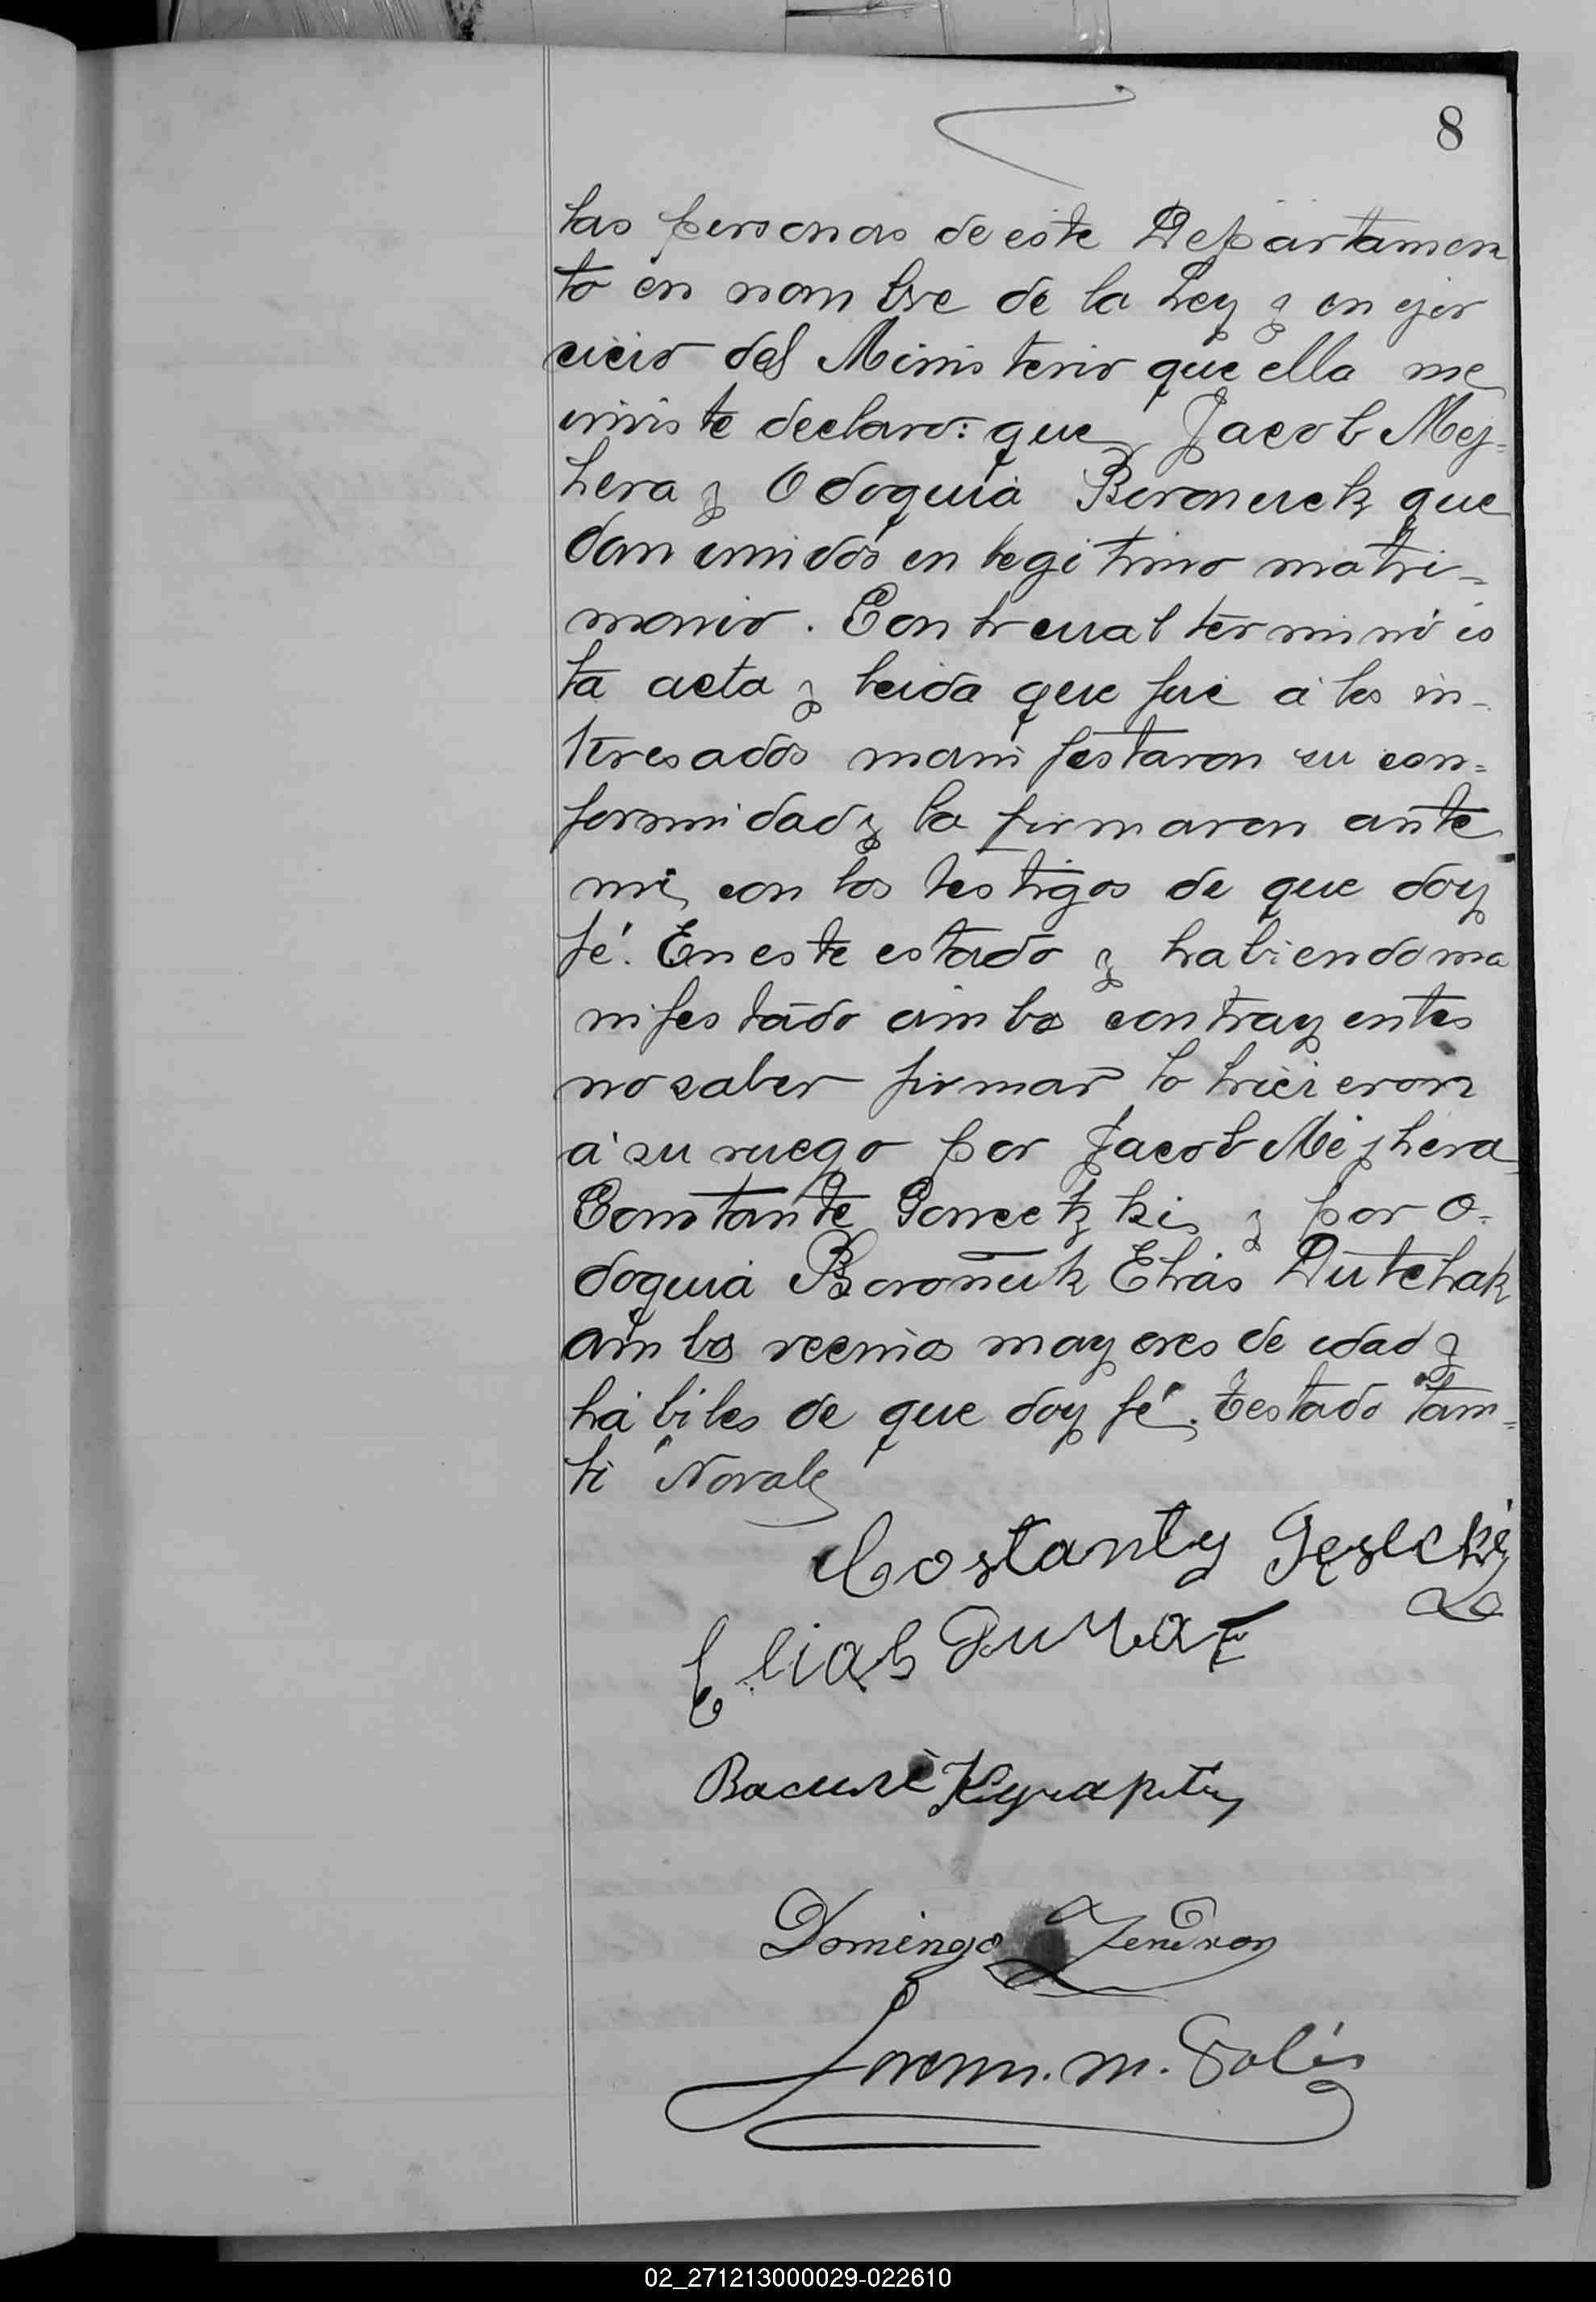 8
las personas de este Departamen
to en nombre de la Ley y en ejer
cicio del Ministerio que ella me
inviste declaro: que Jacob Mej-
hera y Odoquia Boronuck que
dan unidos en legitimo matri-
monio. Con lo cual terminó és
ta acta y leida que fué á los in-
teresados manifestaron su con=
formidad y la firmaron ante
mi, con los testigos de que doy
fé. En este estado y habiendo ma
nifestado ambos contrayentes
no saber firmar lo hicieron
á su ruego por Jacob Mejhera
Constante Goncetzki, y por O-
doquia Boronuck Elías Dutchak
ambos vecinos mayores de edad y
hábiles de que doy fé. Testado "tam-
bi" No vale
Costanty
Elias
Domingo
m. Solis
02_271213000029-022610